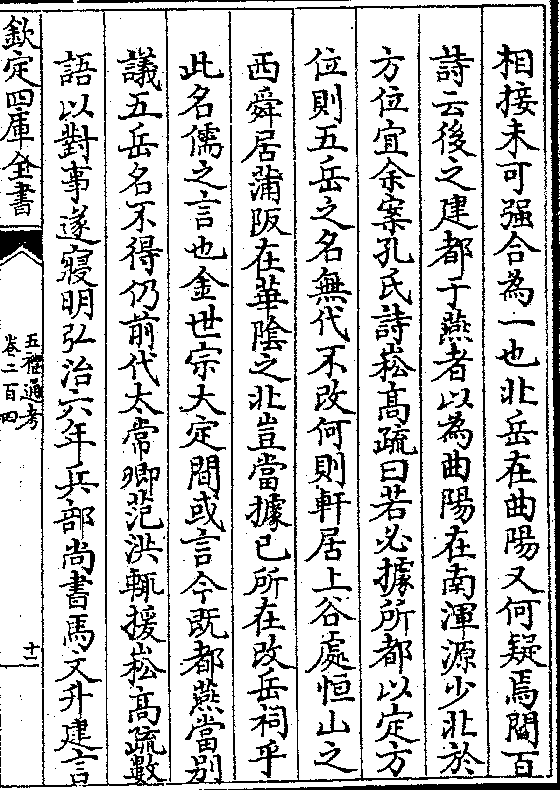 相接未可强合為一也北岳在曲陽又何疑焉閻百
詩云後之建都于燕者以為曲陽在南渾源少北於
方位宜余案孔氏詩崧高疏曰若必據所都以定方
位則五岳之名無代不改何則軒居上谷處恒山之
西舜居蒲阪在華陰之北豈當據已所在改岳祠乎
此名儒之言也金世宗大定間或言今既都燕當别
議五岳名不得仍前代太常卿范拱輒援崧高疏數
語以對事遂寢明弘治六年兵部尚書馬文升建言
欽定四庫全書
五禮通考
卷二百四
十一